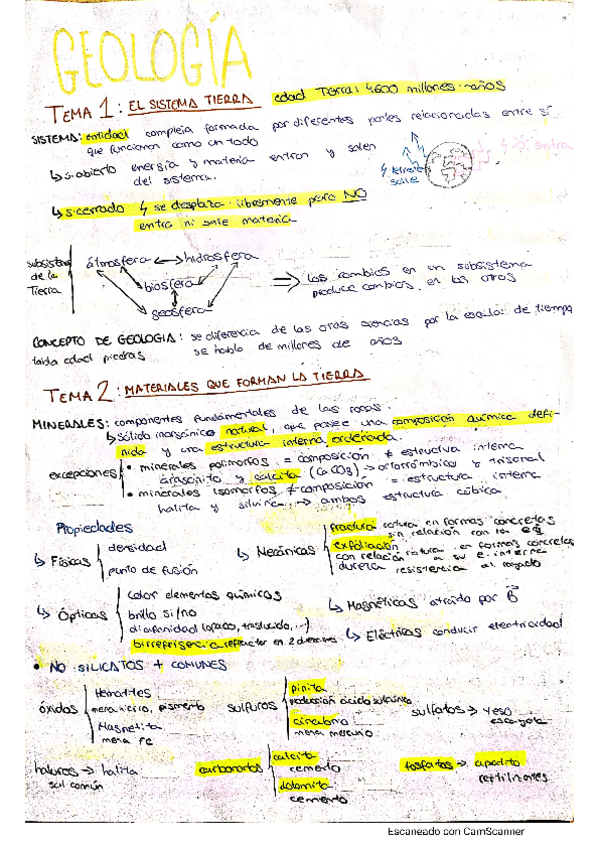 GEOLOGÍA
TEMA 1: EL SISTEMA TIERRA edad Tierra: 4600 millones años
SISTEMA: entidad compleja formada por diferentes partes relacionadas entre sí...
que funcionan como un todo
↳ s.abierto energía y materia entran y salen
del sistema.
entra
sale
↳ s.cerrado se desplaza libremente pero NO
entra ni sale materia
subsistema
de la
Tierra
atmósfera ↔ hidrosfera
biosfera
geosfera
⇒ los cambios en un subsistema
produce cambios en los otros
CONCEPTO DE GEOLOGIA: se diferencia de las otras ciencias por la escala de tiempo
edad piedras se habla de millones de años
TEMA 2: MATERIALES QUE FORMAN LA TIERRA
MINERALES: componentes fundamentales de las rocas.
↳ sólido inorgánico natural, que posee una composición química defi-
nida y una estructura interna ordenada.
excepciones
• minerales polimorfos = composición ≠ estructura interna
aragonito y calcita (CaCO3) → ortorrómbico y trigonal
• minerales isomorfos ≠ composición = estructura interna
halita y silvina → ambos estructura cúbica.
Propiedades
↳ Físicas
densidad
punto de fusión
↳ Mecánicas
fractura rotura en formas concretas
sin relación con la
exfoliación
con relación rotura en formas concretas
a su e. interna
dureza resistencia al
↳ Ópticas
color elementos químicos
brillo si/no
diafanidad (opaco, traslucido,...)
birrefringencia refractor en 2 direcciones
↳ Magnéticas atraído por B
↳ Eléctricas conducir electricidad
• NO SILICATOS + COMUNES
óxidos
Hematites
mena hierro, pigmento
Magnetita
mena Fe
sulfuros
pirita
producción ácido sulfúrico
cinabrio
mena mercurio
sulfatos → yeso
escayola
haluros → halita
sal común
carbonatos
calcita
cemento
dolomita
cemento
fosfatos → apatito
fertilizantes
Escaneado con CamScanner